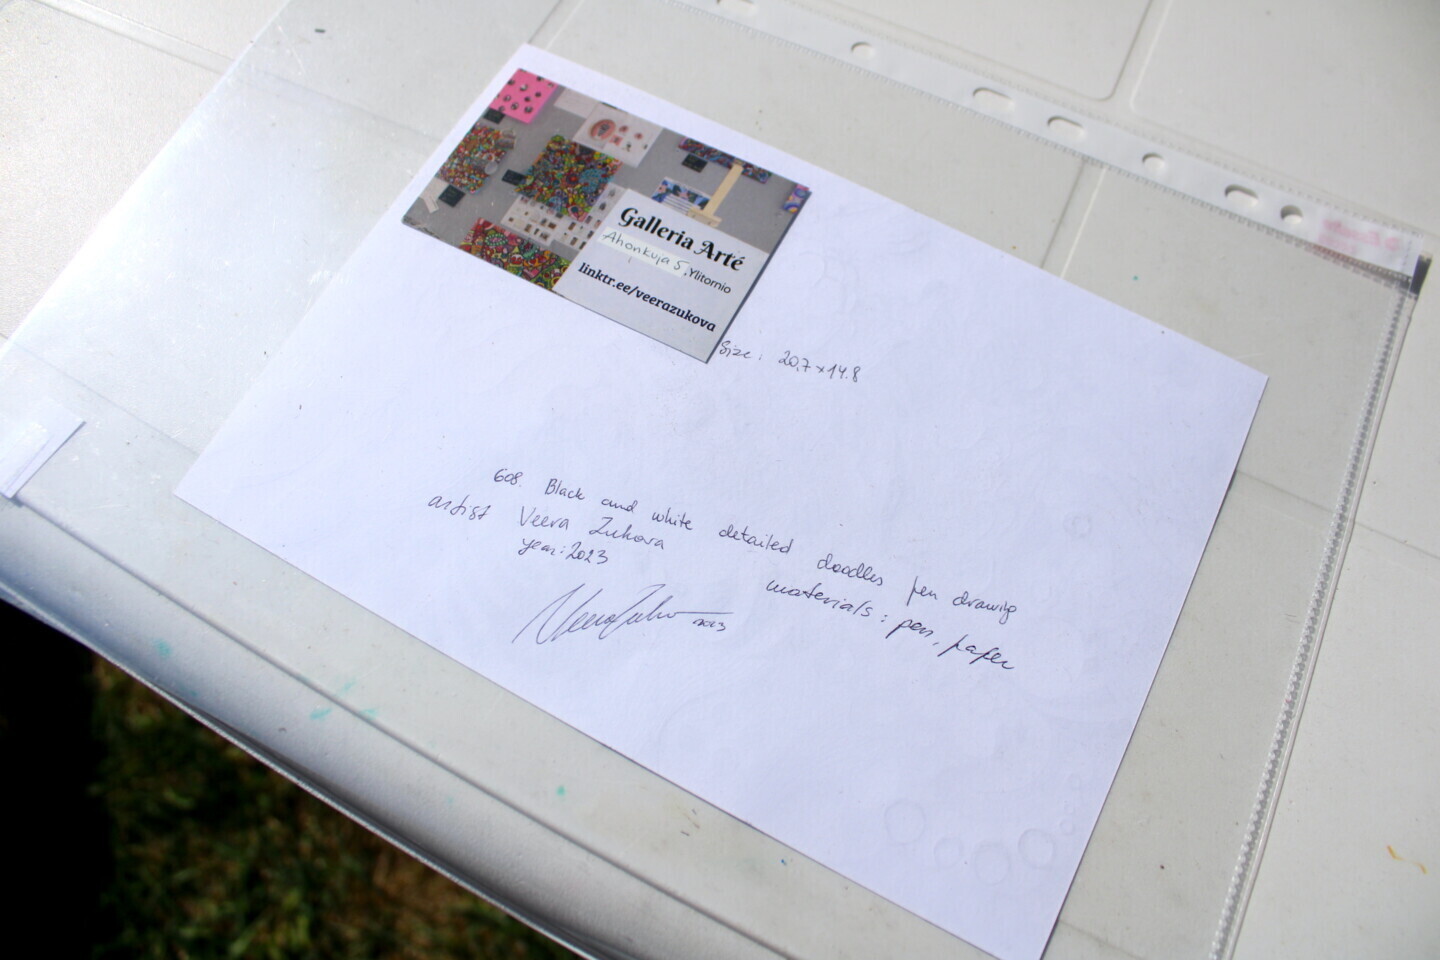 Galleria Arté
Ahonkuja 5, Ylitornio
linktr.ee/veerazukova
Size: 20,7x14.8
608. Black and white detailed doodles pen drawing
artist Veera Zukova
materials: pen, paper
year: 2023
Veera Zukova 2023